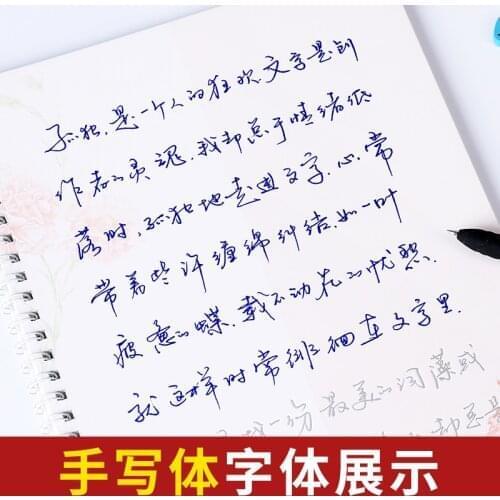 孤独,是一个人的狂欢.文字是创
作者的灵魂.我却总于情绪低
落时,孤独地走进文字.心,常
带着些许缠绵纠结.如一叶
疲惫的蝶.载不动花的忧愁.
就这样时常徘徊在文字里.
一份最美的词藻或
却总是
手写体字体展示